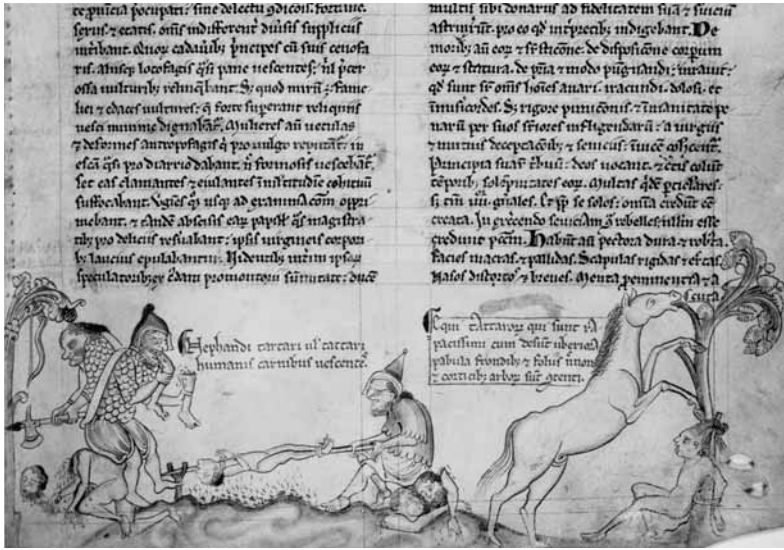 te pvincia pocupati: sine delectu 9dicoīs. fortune.
sexus. & etatis. om̄s indifferent̄ diūsis suppliciis
ꝑibant. Quoꝝ cadauībꝫ p̄ncipes cū suis cenofa
ris. aliisqꝫ lotofagis q̄si pane uescentes: n̄l p̄ter
ossa uulturibꝫ relinq̄bant. Sꝫ quod mirū ÷ fame
lici & edaces uultures: q̄ forte suꝑant reliquiis
uesci minime dignabāt᷑. Mulieres aū uetulas
& deformes antropofagis q̄ pro uulgo reputāt᷑: in
escā q̄si pro diario dabant. n̄ formosis uescebāt᷑
set eas clamantes & eiulantes ī multitudīe cohituū
suffocabant. Uḡīes qꝫ usqꝫ ad exanimacōm oppri
mebant. & tandē abscisis eaꝝ papill' q̄s magistra
tibꝫ pro deliciis resuabant: ipsis uirgineis corpori
bꝫ laucius epulabantur. Uidentibꝫ int̄im ipsoꝝ
speculatoribꝫ ex promontorii sūmitate: ducē
multis sibi donariis ad fidelitatem suā & suiciū
astrinx̄t. pro eo qd int̄pretibꝫ indigebant. De
moribꝫ aū eoꝝ & sꝑsticōne. de disposicōne corpum
eoꝝ & statura. de p̄ria & modo pūgnandi: iurauit:
qd sunt sr̄ om̄s hoīes auari. iracundi. dolosi. et
īmisicordes. Sꝫ rigore punicōnis & īmanitate pe
narū per suos sr̄iores infligendarū: a iurgiis
& mutuis decepcōibꝫ & seuiciis: īuicē cohīcent᷑.
Principia suaꝝ t̄buū: deos uocant. & c̄tis colūt
t̄poribꝫ solēpnitates eoꝝ. Multas qͥdē ꝑticłares.
sꝫ tm̄ iiii. gn̄ales. Et ꝓp̄ se solos: omīa credūt ēē
creata. In exercendo seuiciam ī rebelles: nullū esse
credunt pccm̄. Habūt aū pectora dura. & robusta.
facies macras & pallidas. Scapulas rigidas & erctas.
Nasos distortos & breues. Menta p̄eminentia & a
cuta
Nephandi tartari ul' tattari
humanis carnibus uescentes.
Equi tattaroꝝ qui sunt ra
pacissimi cum desūt uberiora
pabula frondibꝫ & foliis n̄non
& corticibꝫ arboꝝ sūt 9tenti.